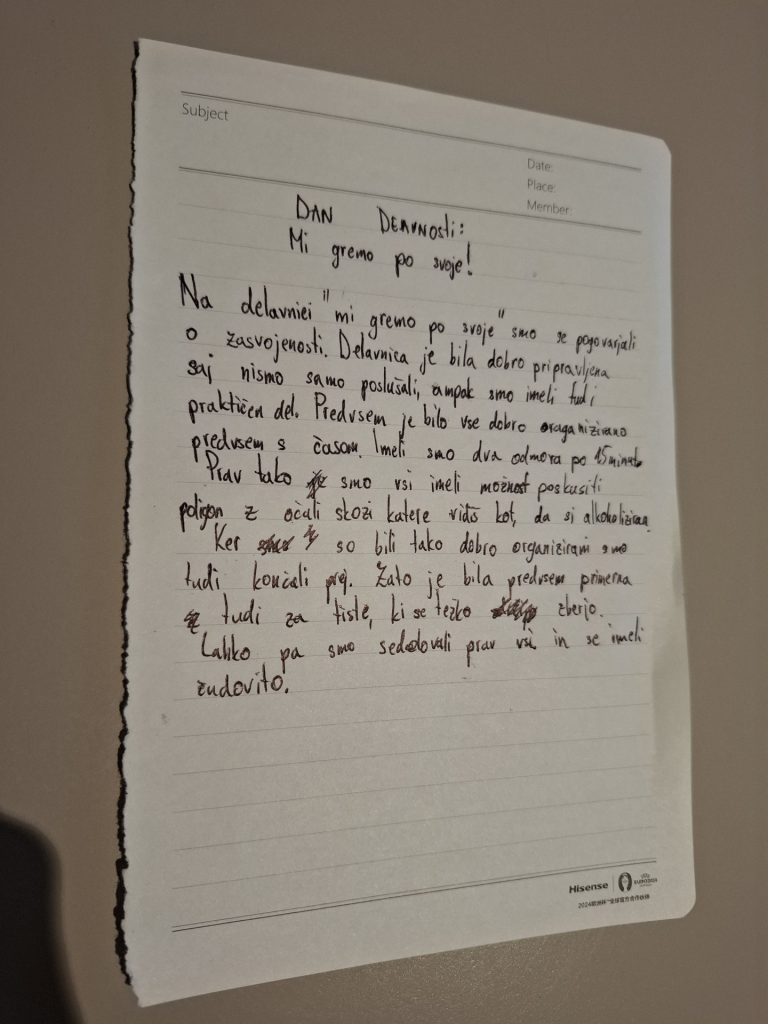 Subject
Date:
Place:
Member:
DAN DEAVNOSTI:
Mi gremo po svoje!
Na delavnici "mi gremo po svoje" smo se pogovarjali
o zasvojenosti. Delavnica je bila dobro pripravljena
saj nismo samo poslušali, ampak smo imeli tudi
praktičen del. Predvsem je bilo vse dobro oraganizirano
predvsem s časom. Imeli smo dva odmora po 15 minut.
Prav tako smo vsi imeli možnost poskusiti
poligon z očali skozi katere vidiš kot, da si alkoholiziran
Ker so bili tako dobro organizirani smo
tudi končali prej. Zato je bila predvsem primerna
tudi za tiste, ki se težko zberjo.
Lahko pa smo sedodovali prav vsi in se imeli
čudovito.
Hisense
2024欧洲杯™全球官方合作伙伴